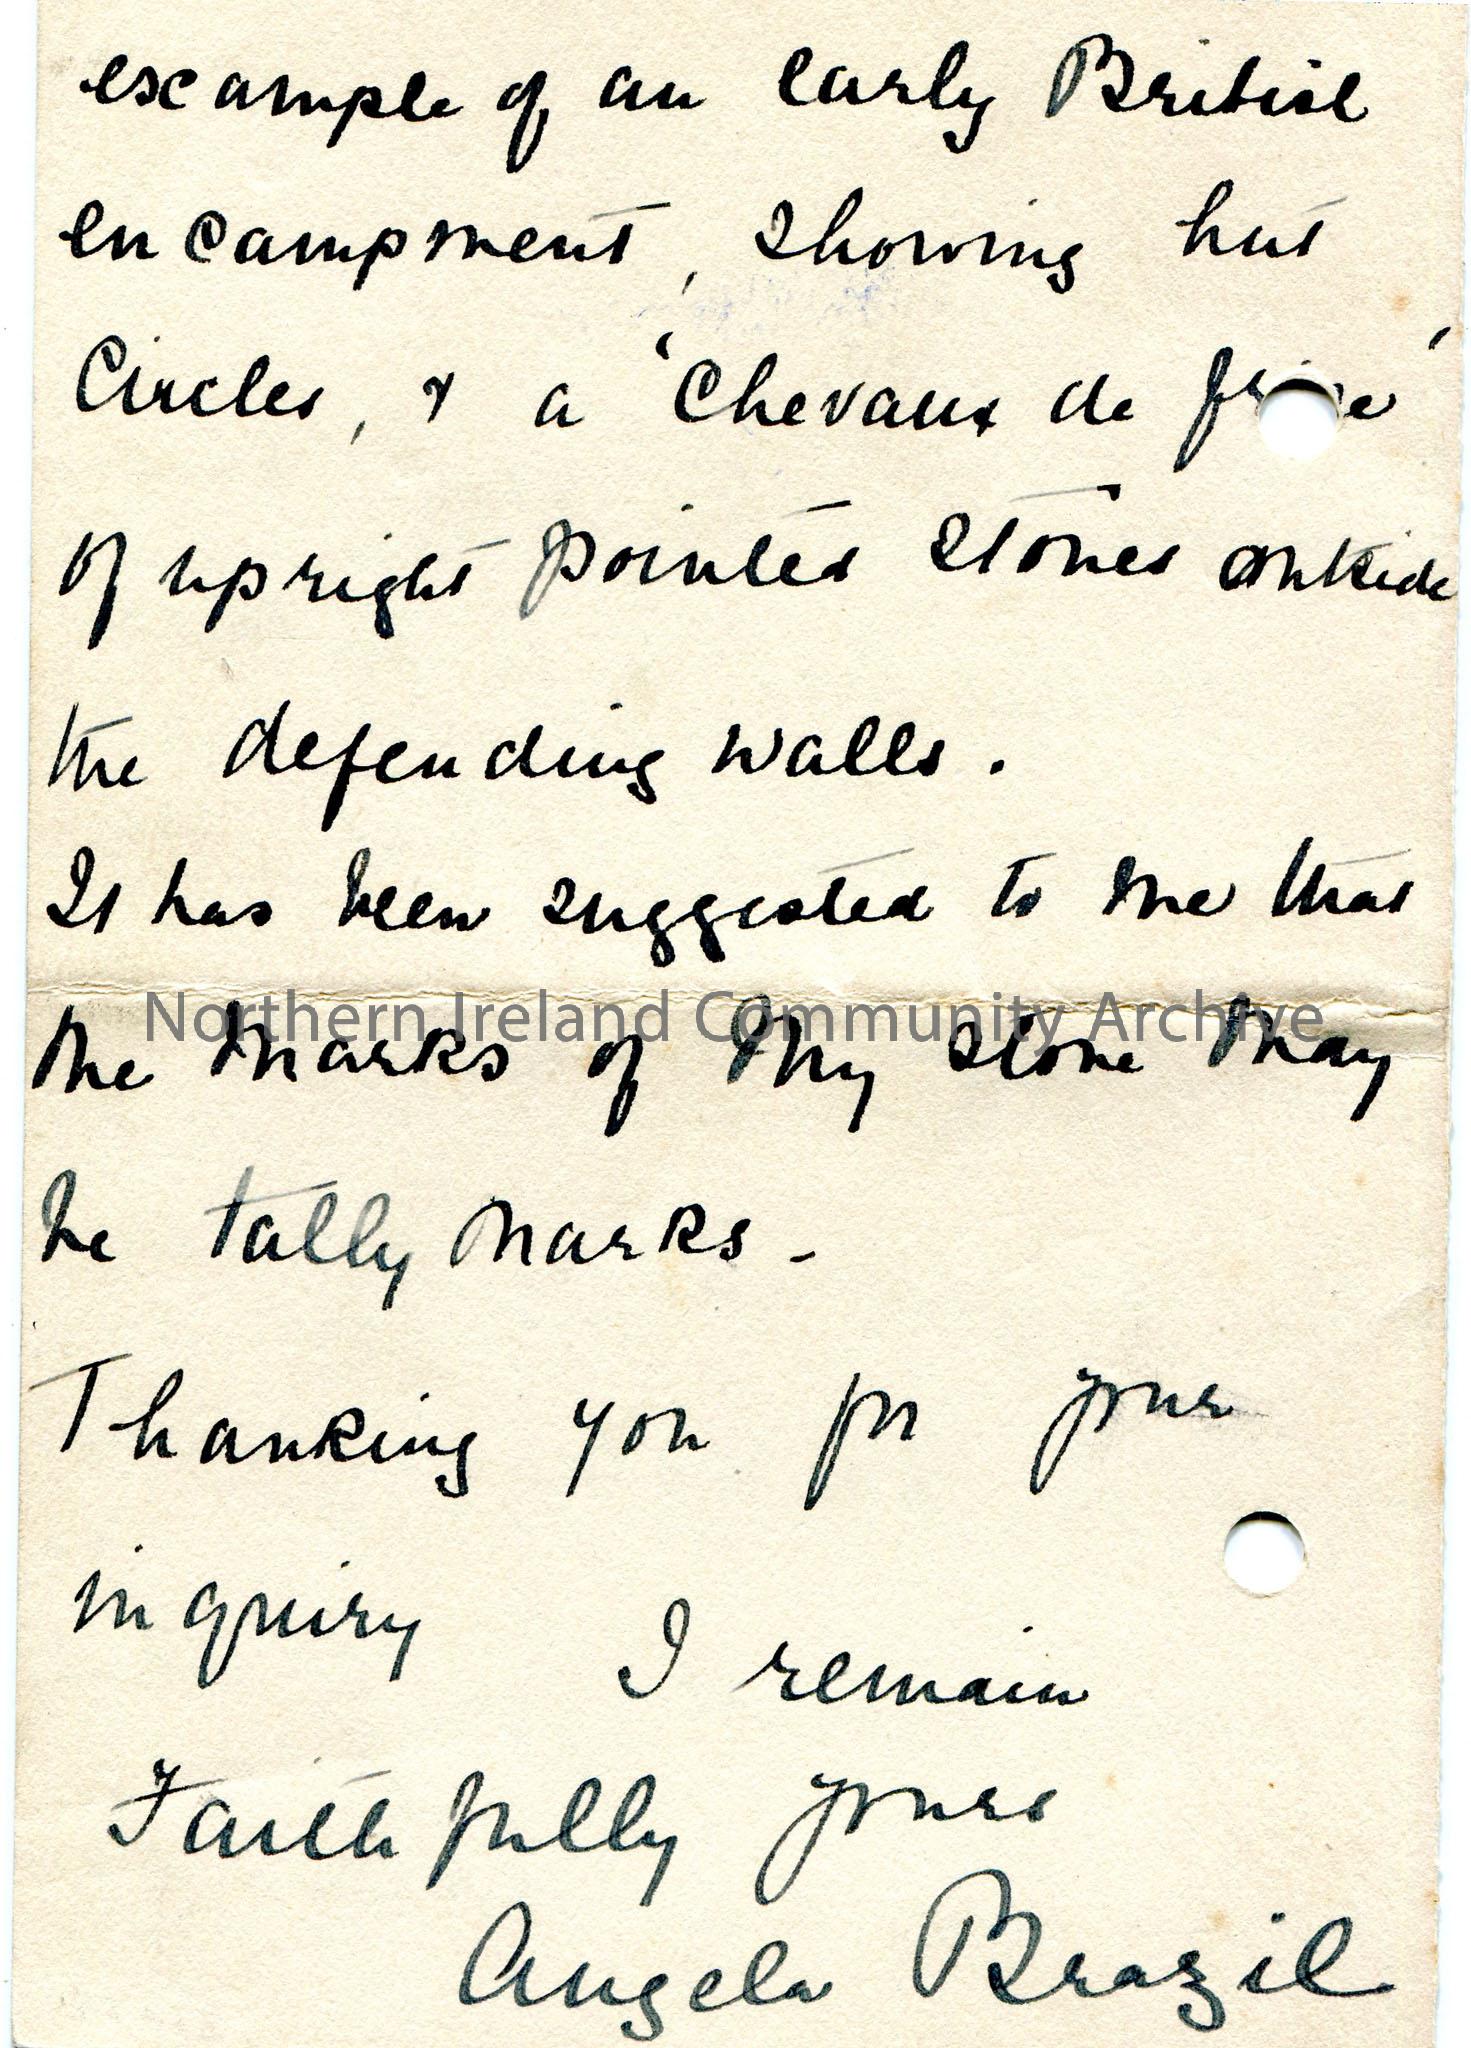 example of an early British
encampment, showing hut
Circles, & a 'Chevaux de
of upright pointed stones outside
the defending walls.
It has been suggested to me that
Northern Ireland Community Archive
the marks of my stone may
be tally marks -
Thanking you for your
inquiry I remain
Faithfully yours
Angela Brazil